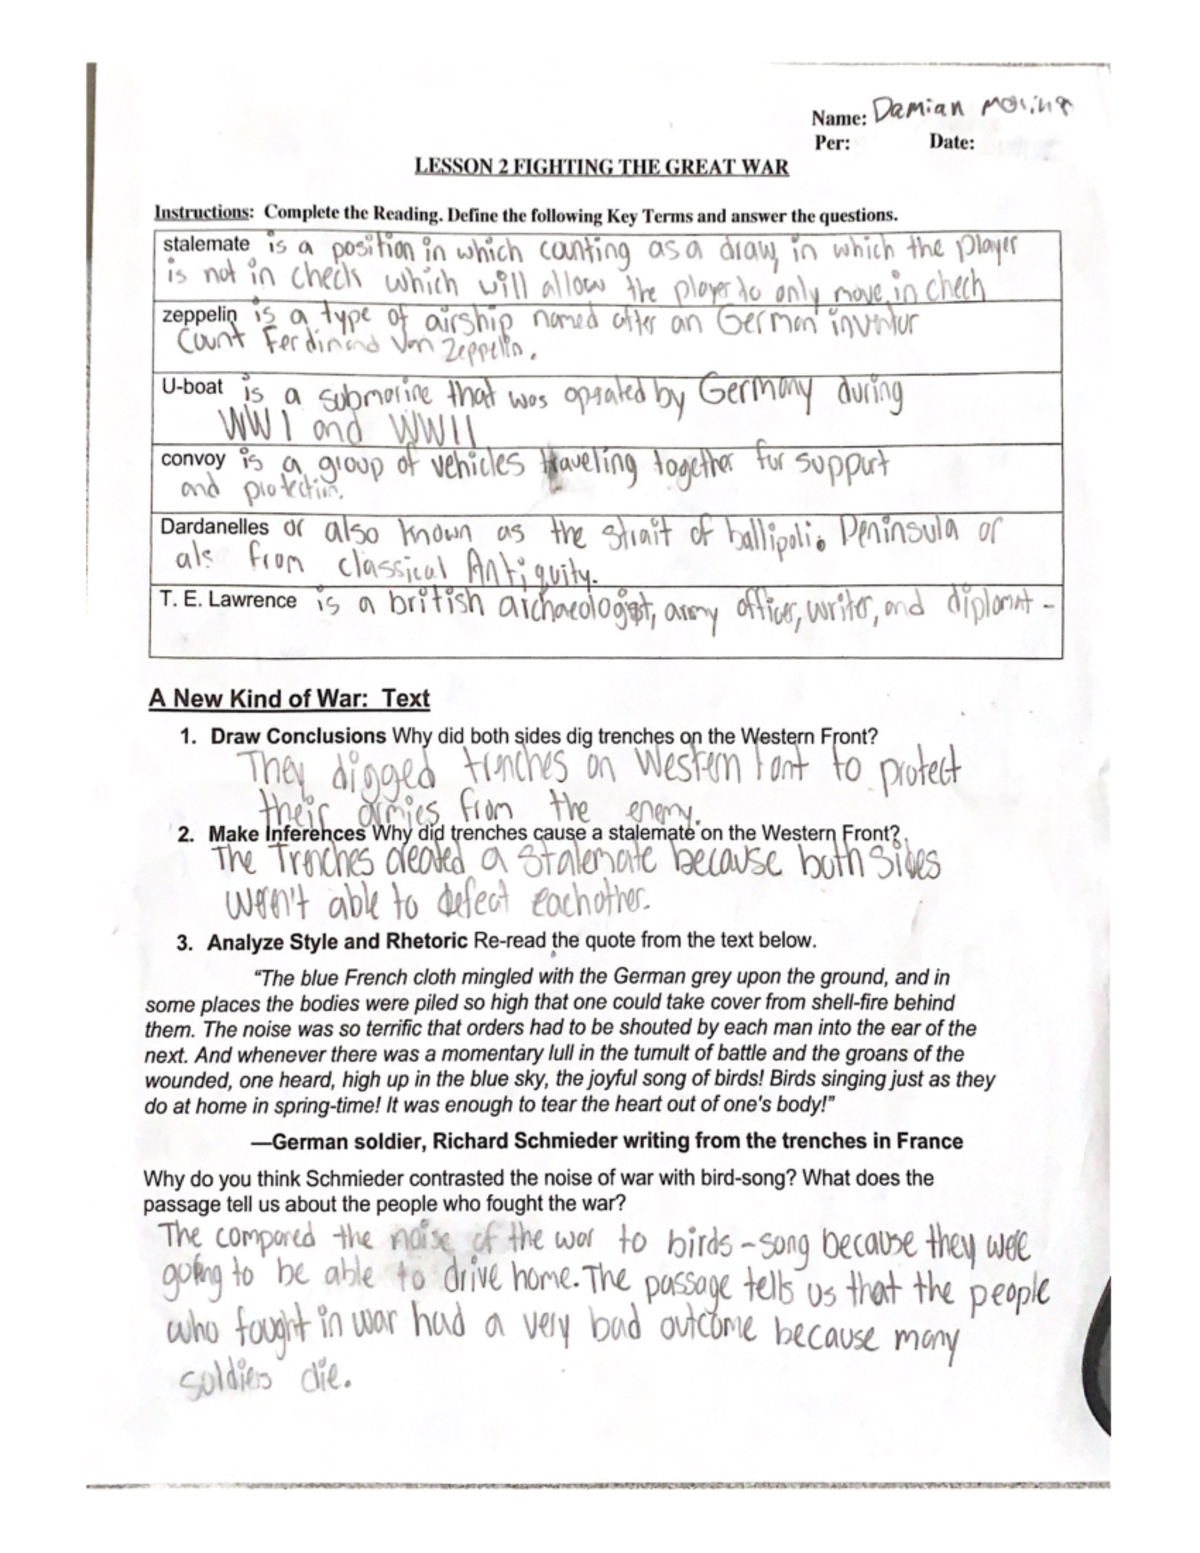 Name: Damian Molina
Per: Date:
LESSON 2 FIGHTING THE GREAT WAR
Instructions: Complete the Reading. Define the following Key Terms and answer the questions.
stalemate is a position in which counting as a draw, in which the player
is not in check which will allow the player to only move in chech
zeppelin is a type of airship named after an German inventur
Count Ferdinand Von Zeppelin.
U-boat is a submarine that was oprated by Germany during
WW I and WW II
convoy is a group of vehicles traveling together fur suppurt
and protectiun.
Dardanelles or also known as the strait of ballipoli. Peninsula or
als from classical Antiquity.
T. E. Lawrence is a british archaeologist, army officer, writer, and diplomat -
A New Kind of War: Text
1. Draw Conclusions Why did both sides dig trenches on the Western Front?
They digged trenches on Western Font to protect
their armies from the enemy.
2. Make Inferences Why did trenches cause a stalemate on the Western Front?
The Trenches created a Stalemate because buth Sides
weren't able to defect eachother.
3. Analyze Style and Rhetoric Re-read the quote from the text below.
"The blue French cloth mingled with the German grey upon the ground, and in
some places the bodies were piled so high that one could take cover from shell-fire behind
them. The noise was so terrific that orders had to be shouted by each man into the ear of the
next. And whenever there was a momentary lull in the tumult of battle and the groans of the
wounded, one heard, high up in the blue sky, the joyful song of birds! Birds singing just as they
do at home in spring-time! It was enough to tear the heart out of one's body!"
—German soldier, Richard Schmieder writing from the trenches in France
Why do you think Schmieder contrasted the noise of war with bird-song? What does the
passage tell us about the people who fought the war?
The compared the noise of the war to birds-song because they were
going to be able to drive home. The passage tells us that the people
who fought in war had a very bad outcume because many
suldiers die.